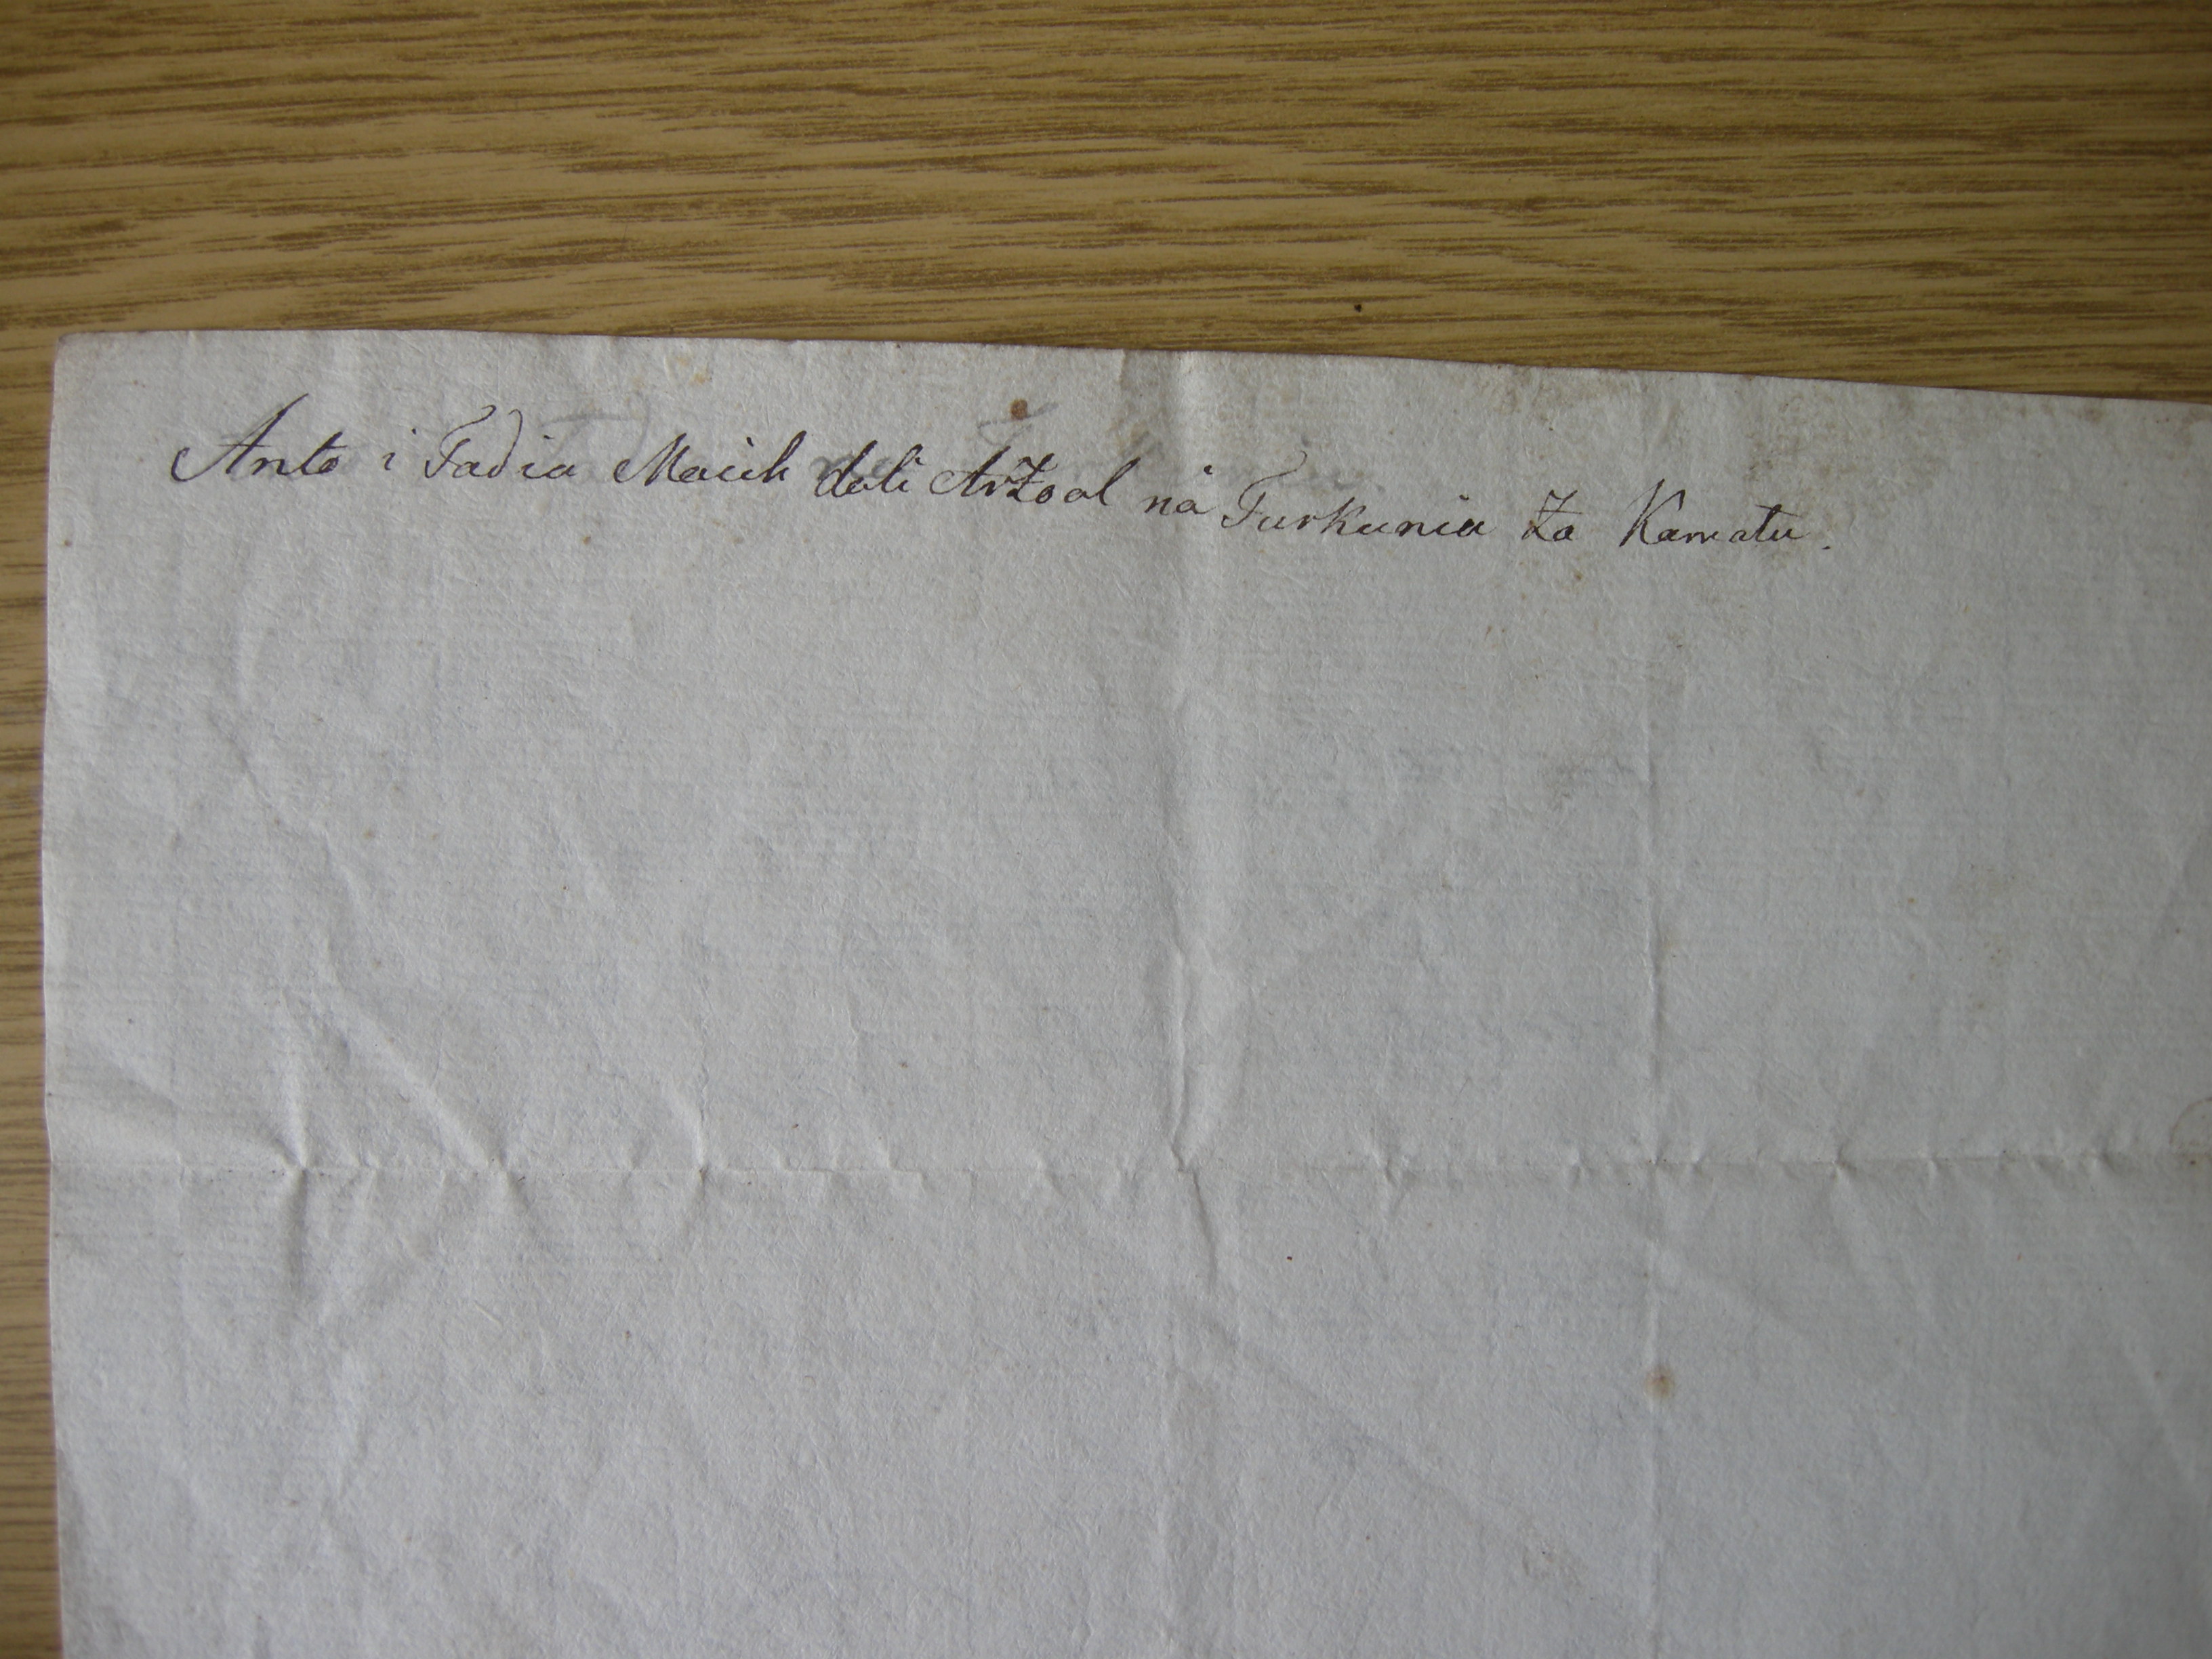 Anto i Tadia Macih dali Arzoal na Turkunia za Kamatu.